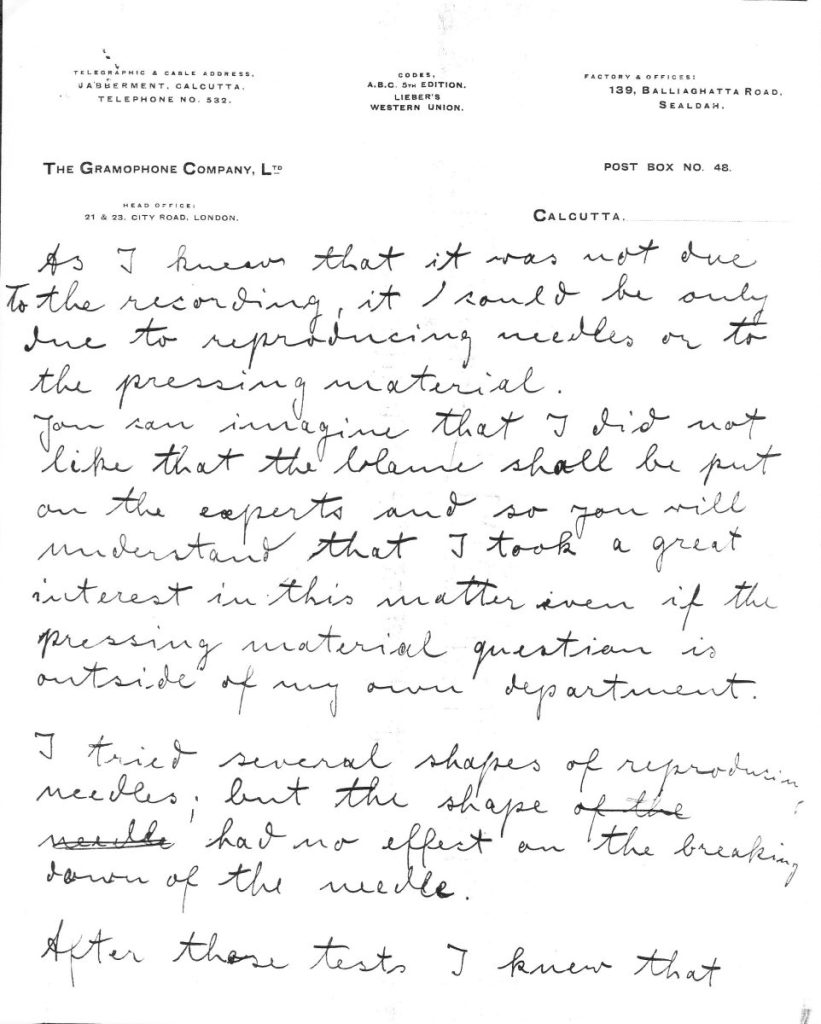 TELEGRAPHIC & CABLE ADDRESS,
JABBERMENT, CALCUTTA.
TELEPHONE NO. 532.
CODES,
A.B.C. 5TH EDITION.
LIEBER'S
WESTERN UNION.
FACTORY & OFFICES:
139, BALLIAGHATTA ROAD,
SEALDAH.
THE GRAMOPHONE COMPANY, LTD
HEAD OFFICE:
21 & 23, CITY ROAD, LONDON.
POST BOX NO. 48.
CALCUTTA,
As I knew that it was not due
To the recording, it could be only
due to reproducing needles or to
the pressing material.
You can imagine that I did not
like that the blame shall be put
on the experts and so you will
understand that I took a great
interest in this matter even if the
pressing material question is
outside of my own department.
I tried several shapes of reproducing
needles; but the shape of the
needle had no effect on the breaking
down of the needle.
After those tests I knew that